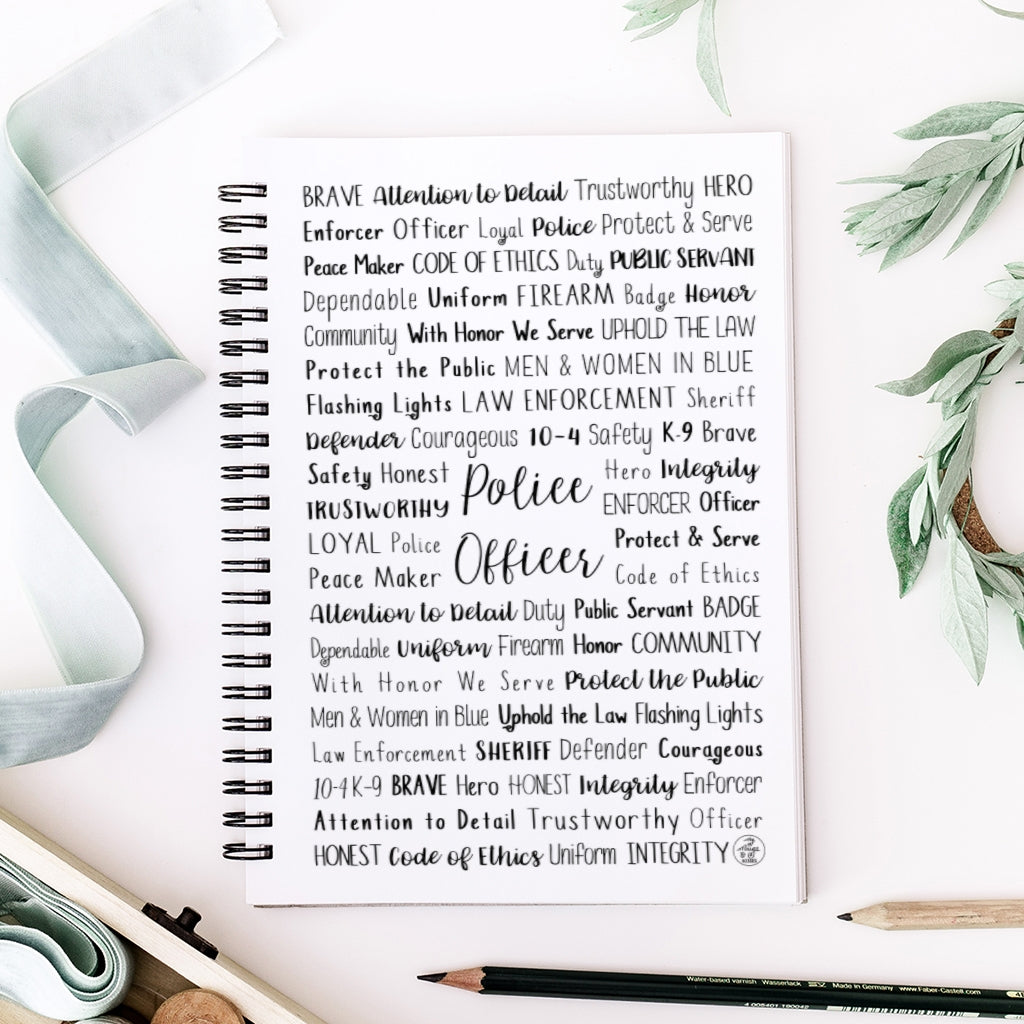 BRAVE Attention to Detail Trustworthy HERO
Enforcer Officer Loyal Police Protect & Serve
Peace Maker CODE OF ETHICS Duty PUBLIC SERVANT
Dependable Uniform FIREARM Badge Honor
Community With Honor We Serve UPHOLD THE LAW
Protect the Public MEN & WOMEN IN BLUE
Flashing Lights LAW ENFORCEMENT Sheriff
Defender Courageous 10-4 Safety K-9 Brave
Safety Honest
TRUSTWORTHY
Police
Hero Integrity
ENFORCER Officer
LOYAL Police
Peace Maker
Officer
Protect & Serve
Code of Ethics
Attention to Detail Duty Public Servant BADGE
Dependable Uniform Firearm Honor COMMUNITY
With Honor We Serve Protect the Public
Men & Women in Blue Uphold the Law Flashing Lights
Law Enforcement SHERIFF Defender Courageous
10-4 K-9 BRAVE Hero HONEST Integrity Enforcer
Attention to Detail Trustworthy Officer
HONEST Code of Ethics Uniform INTEGRITY
Water-based varnish Wasserlack Made in Germany www.Faber-Castell.com
4 005401 190042